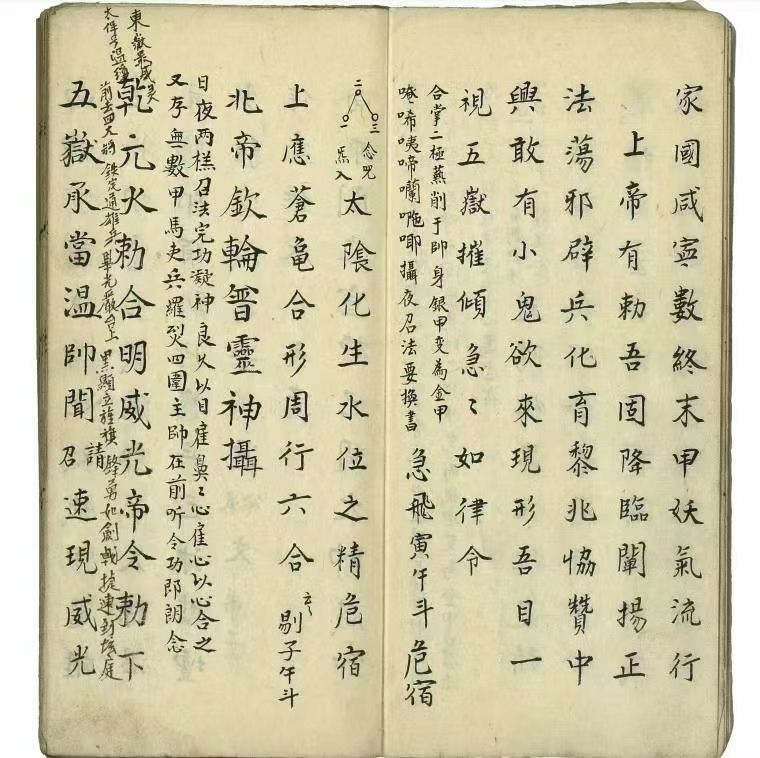 家國咸寧數終末甲妖氣流行
上帝有勅吾固降臨闡揚正
法蕩邪辟兵化育黎兆恊贊中
興敢有小鬼欲來現形吾目一
視五嶽摧傾急〻如律令
合掌二極蕉削于帥身銀甲变為金甲
唵唏咦啼囒吔㖿攝夜召法要換書
急飛寅午斗危宿
二 一 三 念咒
炁入
太陰化生水位之精危宿
上應蒼龜合形周行六合
剔子午斗
北帝欽輪晋靈神攝
日夜两樣召法完功凝神良久以目𨿽鼻〻心𨿽心以心合之
又存無數甲馬吏兵羅列四圍主帥在前听令功即朗念
乾元火勅合明威光帝令勅下
前去四大將 欽完通雄兵畢光嚴台上 黑顯立旌旗 鋒勇如劍戟捷速到坛庭
五嶽承當溫帥聞召請速現威光
東嶽最威灵
太保号溫瓊